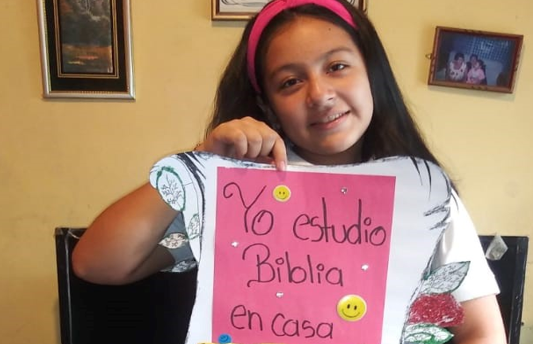 Yo estudio
Biblia
en casa